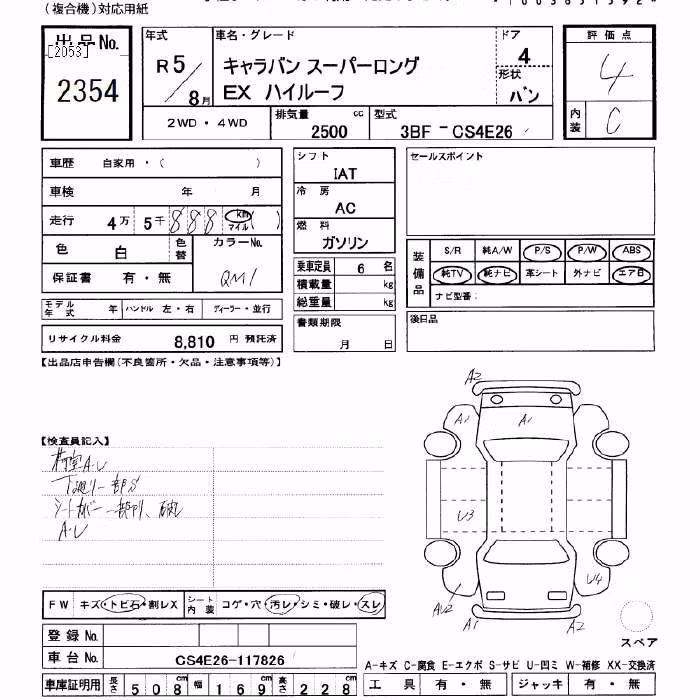 (複合機)対応用紙
出品No.
[2053]
2354
年式 R5/8月
車名・グレード
キャラバン スーパーロング
EX ハイルーフ
ドア 4
形状 バン
評価点 4
内装 C
2WD・4WD
排気量 2500 cc
型式 3BF-CS4E26
車歴 自家用・( )
車検 年 月
走行 4万 5千 888 km マイル ( )
色 白 色替 カラーNo. QM1
保証書 有・無
モデル年式 年 ハンドル 左・右 ディーラー・並行
リサイクル料金 8,810 円 預託済
シフト
IAT
冷房
AC
燃料
ガソリン
乗車定員 6 名
積載量 kg
総重量 kg
書類期限
月 日
セールスポイント
装備品
S/R 純A/W P/S P/W ABS
純TV 純ナビ 革シート 外ナビ エアB
ナビ型番:
後日品
【出品店申告欄(不良箇所・欠品・注意事項等)】
【検査員記入】
荷室A・U
下廻り一部S
シートカバー一部切り、破れ
A・U
A2
A1
A1
U3
U4
AU2
A1
A2
スペア
FW キズ・トビ石・割レX シート内装 コゲ・穴・汚レ・シミ・破レ・スレ
登録No.
車台No. CS4E26-117826
車庫証明用 長さ 508cm 幅 169cm 高さ 228cm
A-キズ C-腐食 E-エクボ S-サビ U-凹ミ W-補修 XX-交換済
工具 有・無 ジャッキ 有・無